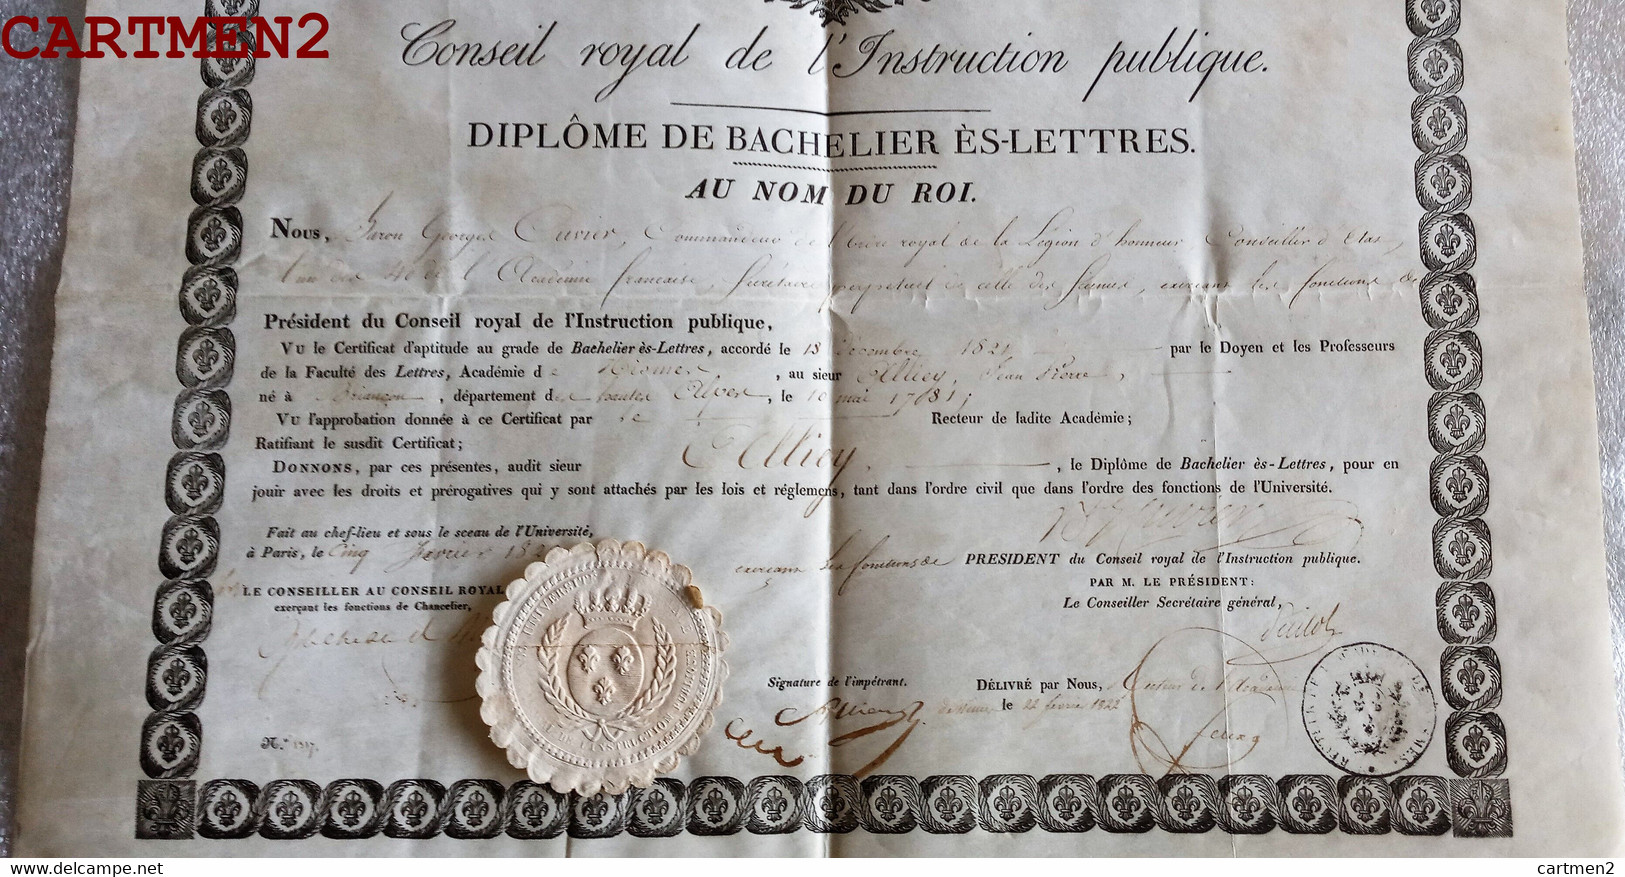 CARTMEN2
Conseil royal de l'Instruction publique.
DIPLÔME DE BACHELIER ÈS-LETTRES.
AU NOM DU ROI.
Nous, Baron Georges Cuvier, Commandeur de l'Ordre royal de la Légion d'honneur, Conseiller d'Etat,
l'un des 40 de l'Académie française, Secrétaire perpétuel de celle des Sciences, exerçant les fonctions de
Président du Conseil royal de l'Instruction publique,
Vu le Certificat d'aptitude au grade de Bachelier ès-Lettres, accordé le 13 Décembre 1821 par le Doyen et les Professeurs
de la Faculté des Lettres, Académie de Nismes, au sieur Alliey, Jean Pierre,
né à Briançon, département des hautes Alpes, le 10 mai
Vu l'approbation donnée à ce Certificat par le Recteur de ladite Académie;
Ratifiant le susdit Certificat;
Donnons, par ces présentes, audit sieur Alliey, le Diplôme de Bachelier ès-Lettres, pour en
jouir avec les droits et prérogatives qui y sont attachés par les lois et réglemens, tant dans l'ordre civil que dans l'ordre des fonctions de l'Université.
Fait au chef-lieu et sous le sceau de l'Université,
à Paris, le Cinq février 182
exerçant les fonctions de PRESIDENT du Conseil royal de l'Instruction publique.
LE CONSEILLER AU CONSEIL ROYAL
exerçant les fonctions de Chancelier,
PAR M. LE PRÉSIDENT:
Le Conseiller Secrétaire général,
UNIVERSITÉ
DE L'INSTRUCTION PUBLIQUE
Signature de l'impétrant.
Alliey
DÉLIVRÉ par Nous, Recteur de l'Académie
de Nismes le 22 février 1822
N.° 1317.
cartmen2